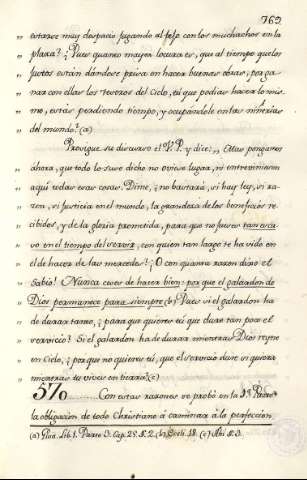 769.
„ estarse muy despacio jugando al tejo con los muchachos en la
„ plaza? ¿Pues quanto mayor locura es, que al tiempo que los
„ Justos están dándose priesa en hacer buenas obras, para ga-
„ nar con ellas los tesoros del Cielo, tú que podias hacer lo mis-
„ mo, estás perdiendo tiempo, y ocupándole en las niñerias
„ del mundo? (a)
Prosigue su discurso el V. P. y dice: „ Mas pongamos
„ ahora, que todo lo sus dicho no oviese lugar, ni entreviniesen
„ aqui todas esas cosas. Dime, ¿no bastará, si hay ley, si ra-
„ zon, si justicia en el mundo, la grandeza de los beneficios re-
„ cibidos, y de la gloria prometida, para que no fueses tan esca-
„ so en el tiempo del servir, con quien tan largo te ha sido en
„ el de hacer de las mercedes? ¡O con quanta razon dixo el
„ Sabio! Nunca ceses de hacer bien: por que el galardon de
„ Dios permanece para siempre (b) Pues si el galardon ha
„ de durar tanto, ¿para qué quieres tú que dure tan poco el
„ servicio? Si el galardon ha de durar mientras Dios reyne
„ en Cielo, ¿por que no quieres tú, que el servicio dure siquiera
„ mientras tu vives en tierra? (c)
570 Con estas razones se probó en la 1ª Parte
la obligacion de todo Christiano á caminar á la perfeccion
(a) Gra. Lib. 1. Parte 3. Cap. 25. §. 2. (b) Eccli. 18. (c) Ibi §. 3.